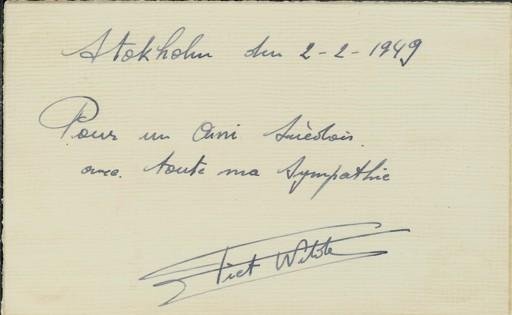 Stokholm den 2-2-1949
Pour un Ami Suèdois
avec toute ma Sympathie
Piet